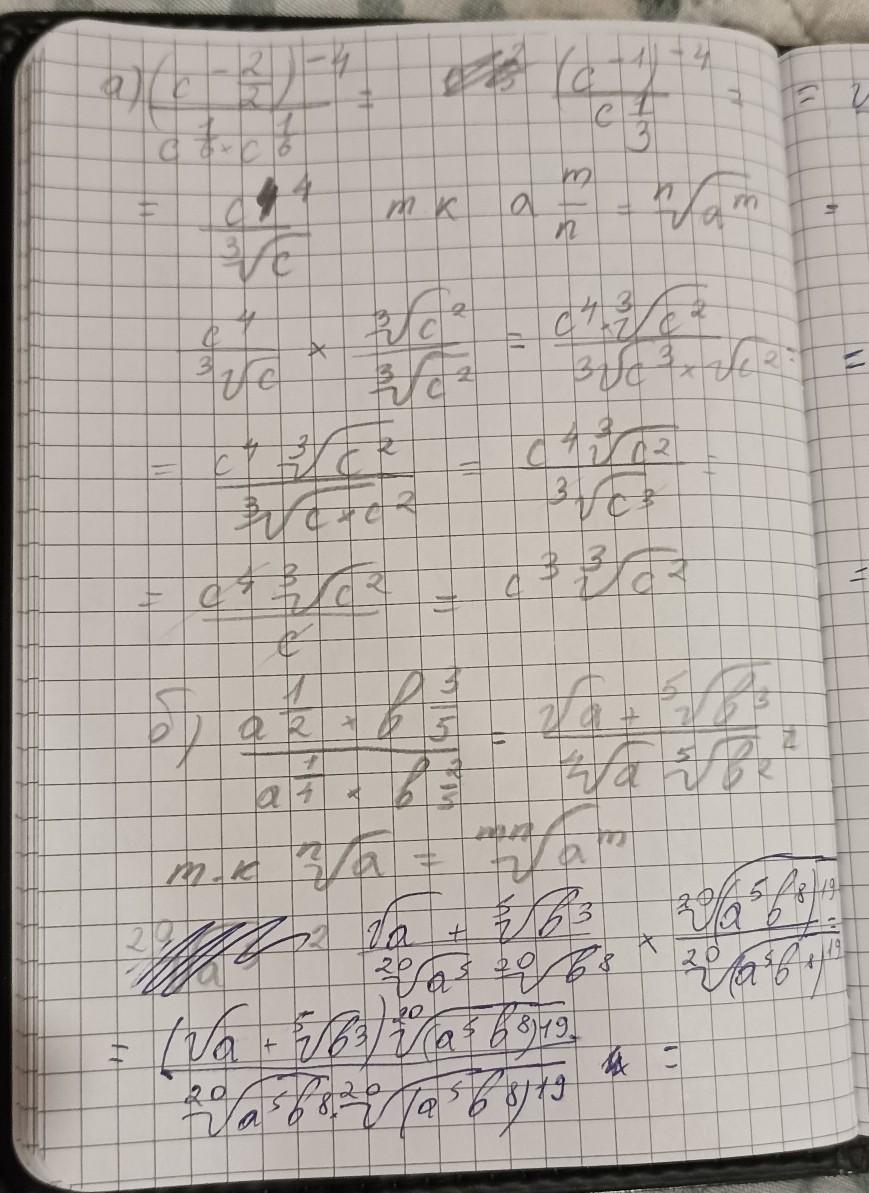 а) (c^{-2/2})^{-4} / (c^{1/6} × c^{1/6}) = (c^{-1})^{-4} / c^{1/3} = =
= c^4 / ∛c т к a^{m/n} = ⁿ√a^m =
c^4 / ∛c × ∛c² / ∛c² = c^4 · ∛c² / ∛c³ × √c² = =
= c^4 ∛c² / ∛c×c² = c^4 ∛c² / ∛c³ =
= c^4 ∛c² / c = c³ ∛c² =
б) a^{1/2} + b^{3/5} / a^{1/4} × b^{2/5} = √a + ⁵√b³ / ⁴√a ⁵√b² =
т.к ⁿ√a = ᵐⁿ√a^m
√a + ⁵√b³ / ²⁰√a⁵ ²⁰√b⁸ × ²⁰√(a⁵b⁸)¹⁹ / ²⁰√(a⁵b⁸)¹⁹ =
= (√a + ⁵√b³) ²⁰√(a⁵b⁸)¹⁹ / ²⁰√a⁵b⁸ · ²⁰√(a⁵b⁸)¹⁹ =